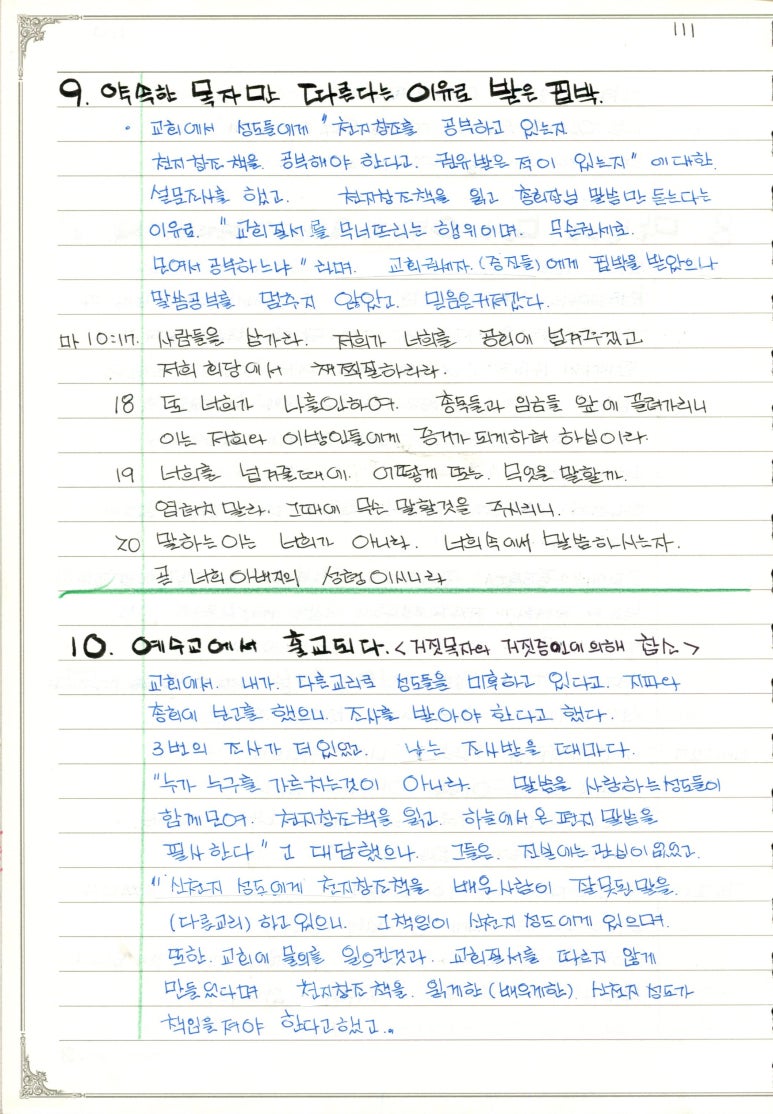 111
9. 약속한 목자만 따른다는 이유로 받은 핍박.
· 교회에서 성도들에게 "천지창조를 공부하고 있는지
천지창조책을. 공부해야 한다고. 권유받은 적이 있는지" 에대한.
설문조사를 했고. 천지창조책을 읽고 총회장님 말씀만 듣는다는
이유로. "교회질서를 무너뜨리는 행위이며. 무슨권세로.
모여서 공부하느냐" 라며. 교회권세자.(중진들)에게 핍박을 받았으나
말씀공부를 멈추지 않았고. 믿음은커져갔다.
마 10:17. 사람들을 삼가라. 저희가 너희를 공회에 넘겨주겠고
저희 회당에서 채찍질하리라.
18 또 너희가 나를인하여. 총독들과 임금들 앞에 끌려가리니
이는 저희와 이방인들에게 증거가 되게하려 하심이라.
19 너희를 넘겨줄때에. 어떻게 또는. 무엇을 말할까.
염려치말라. 그때에 무슨 말할것을 주시리니.
20 말하는이는 너희가 아니라. 너희속에서 말씀하시는자.
곧 너희아버지의 성령이시니라
10. 예수교에서 출교되다.<거짓목자와 거짓증인에의해 참소>
교회에서. 내가. 다른교리로 성도들을 미혹하고 있다고. 지파와
총회에 보고를 했으니 조사를 받아야 한다고 했다.
3번의 조사가 더있었고. 나는 조사받을 때마다.
"누가 누구를 가르치는것이 아니라. 말씀을 사랑하는성도들이
함께모여. 천지창조책을 읽고. 하늘에서 온 편지 말씀을
필사한다" 고 대답했으나. 그들은. 진실에는관심이없었고.
"신천지 성도에게 천지창조책을 배운사람이 잘못된말을.
(다른교리)하고있으니. 그책임이 신천지 성도에게 있으며.
또한. 교회에 물의를 일으킨것과. 교회질서를 따르지 않게
만들었다며 천지창조책을. 읽게한(배우게한). 신천지 성도가
책임을져야 한다고했고..